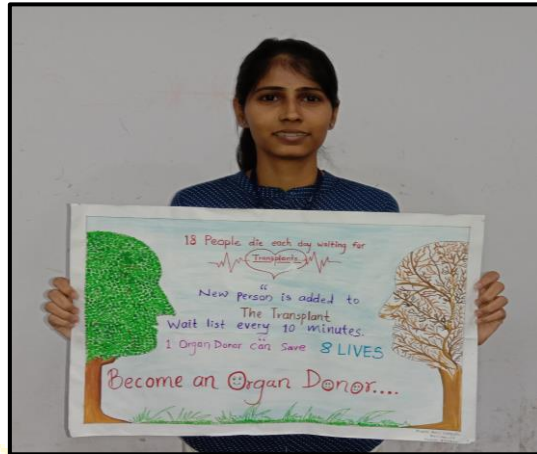 18 People die each day waiting for
Transplants
“
New person is added to
The Transplant
Wait list every 10 minutes.
1 Organ Donor can save 8 LIVES
Become an Organ Donor....